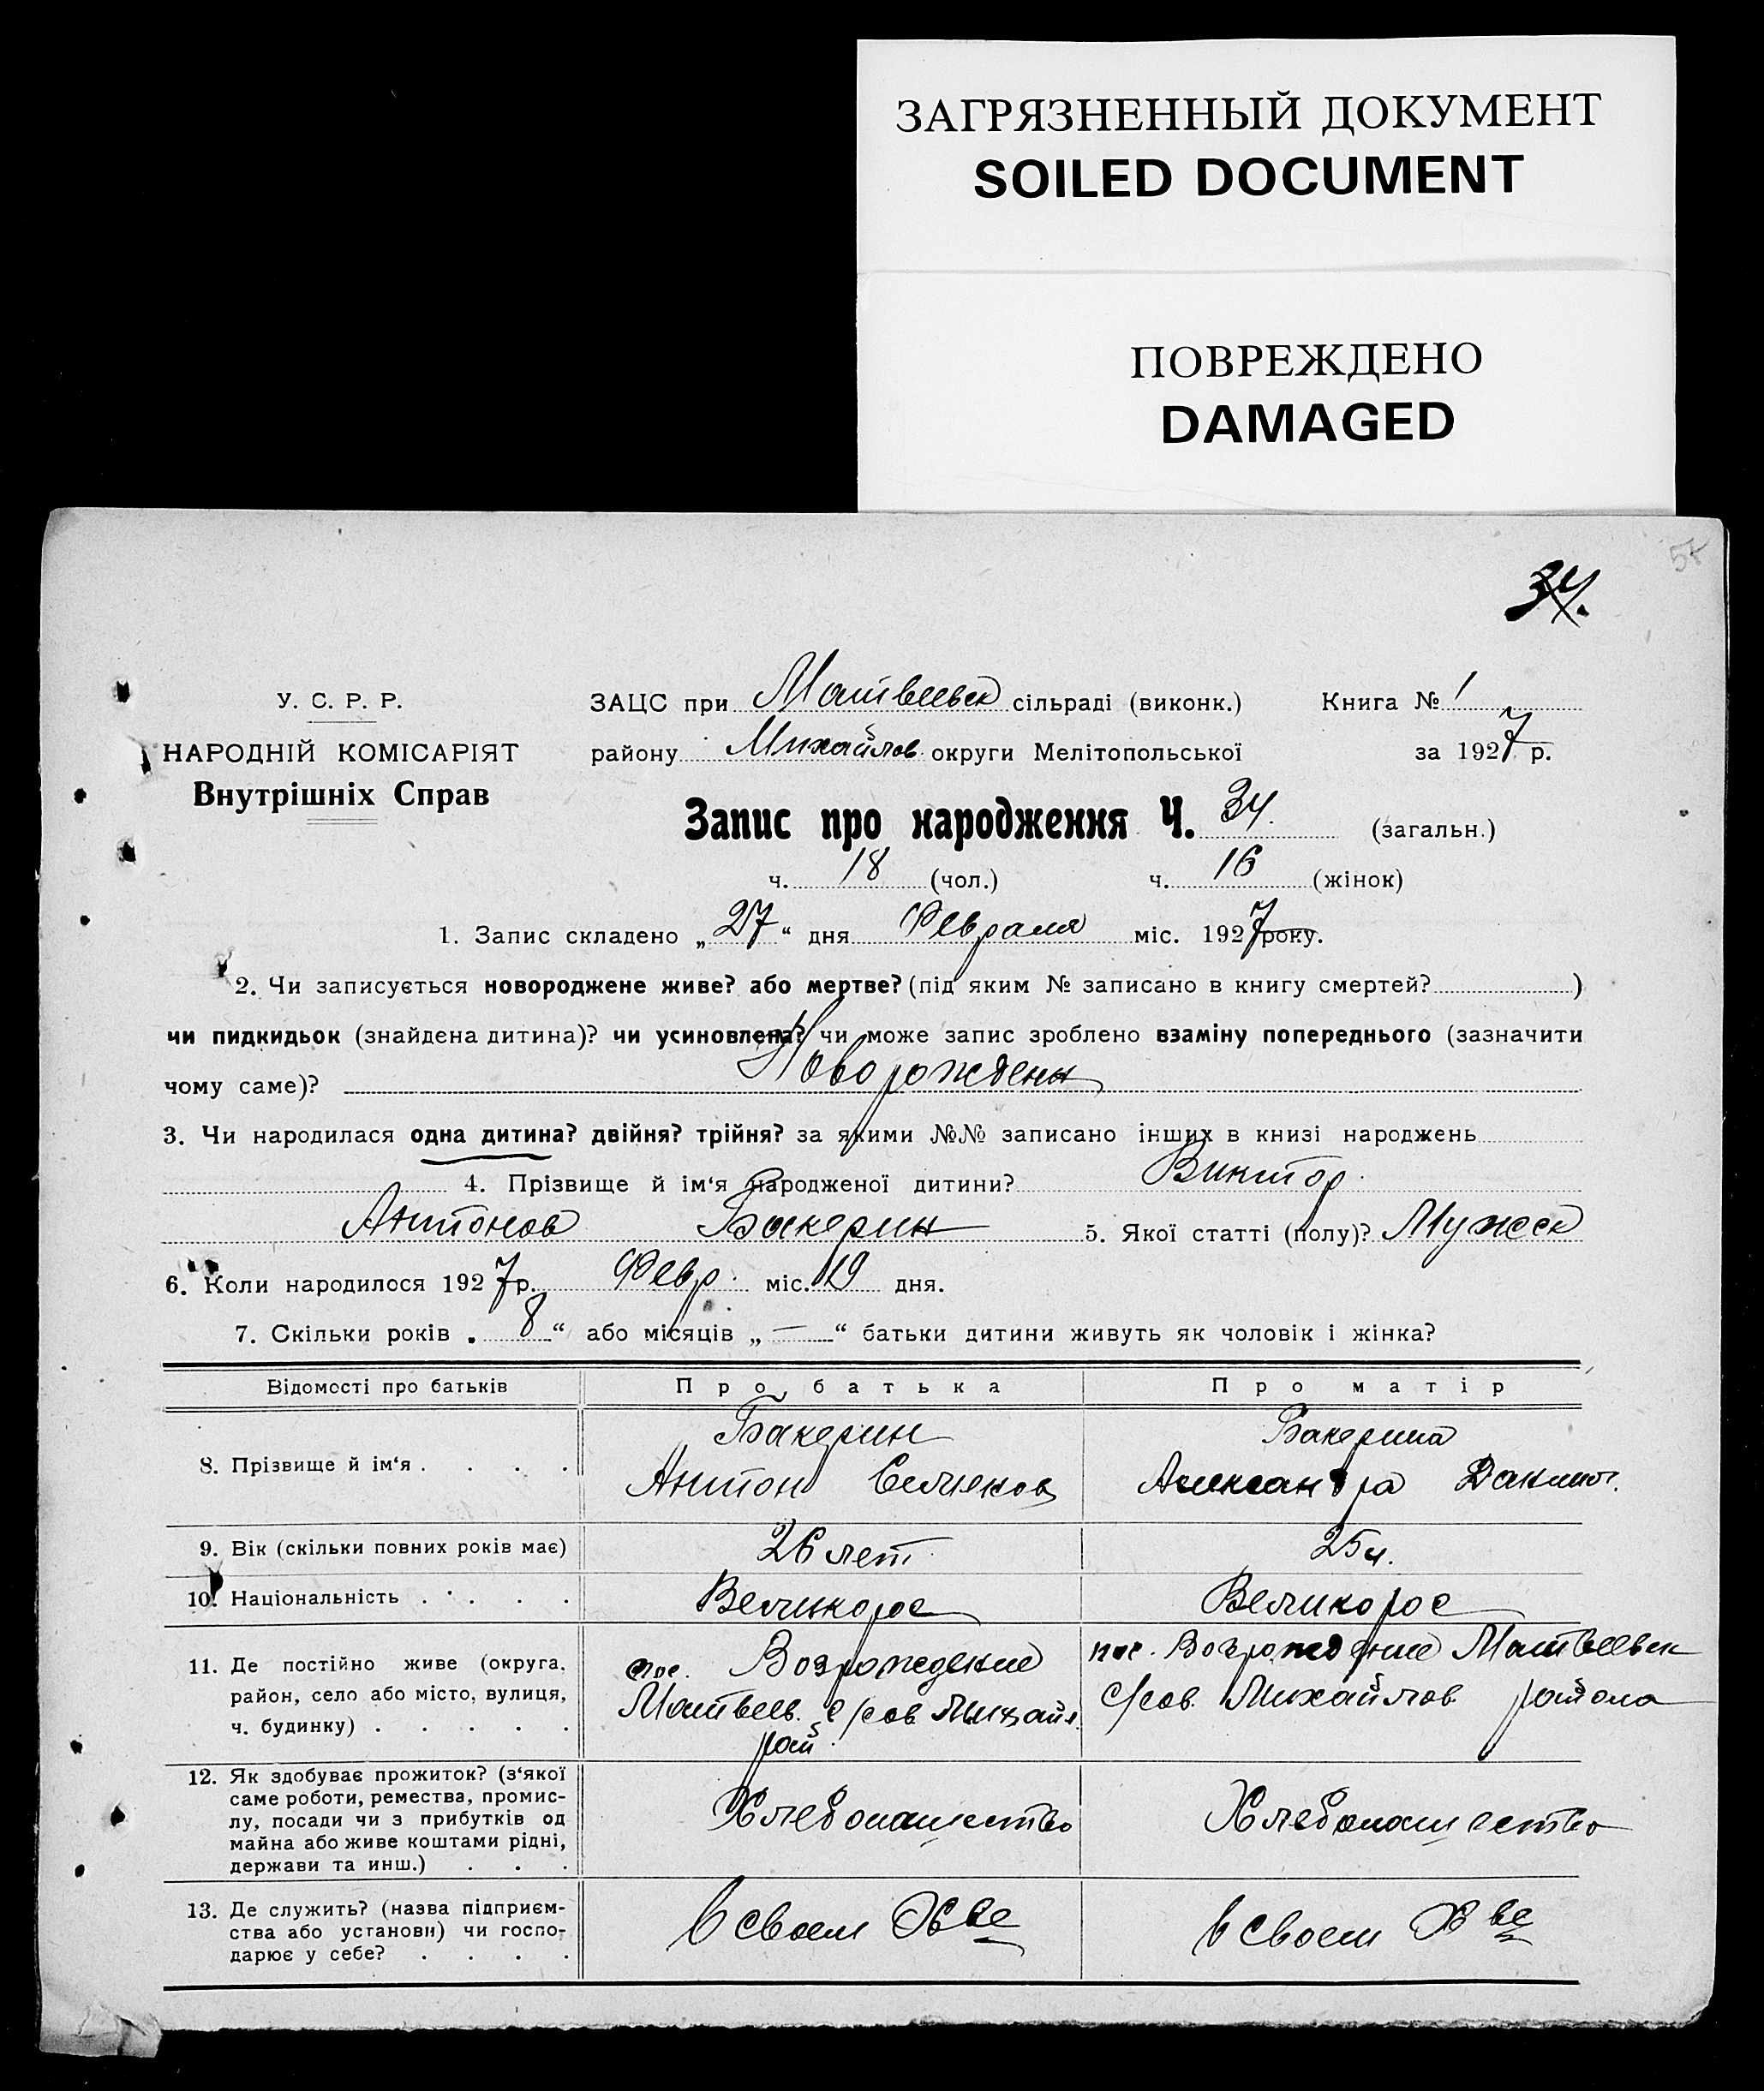 ЗАГРЯЗНЕННЫЙ ДОКУМЕНТ
SOILED DOCUMENT
ПОВРЕЖДЕНО
DAMAGED
34.
У. С. Р. Р.
НАРОДНІЙ КОМІСАРІЯТ
Внутрішніх Справ
ЗАЦС при Матвеевск сільраді (виконк.) Книга № 1
району Михайлов. округи Мелітопольської за 1927 р.
Запис про народження Ч. 34. (загальн.)
ч. 18 (чол.) ч. 16 (жінок)
1. Запис складено „27“ дня Февраля міс. 1927 року.
2. Чи записується новороджене живе? або мертве? (під яким № записано в книгу смертей? )
чи пидкидьок (знайдена дитина)? чи усиновлена? чи може запис зроблено взаміну попереднього (зазначити
чому саме)? Новорожден
3. Чи народилася одна дитина? двійня? трійня? за якими №№ записано інших в книзі народжень
4. Прізвище й ім‘я народженої дитини? Виктор.
Антонов Бакерин 5. Якої статті (полу)? Мужск
6. Коли народилося 1927 р. Февр. міс. 19 дня.
7. Скільки років „8“ або місяців „—“ батьки дитини живуть як чоловік і жінка?
Відомості про батьків Про батька Про матір
8. Прізвище й ім‘я . . . . Бакерин Бакерина
Антон Александра
9. Вік (скільки повних років має) 26 лет 25 л.
10. Національність . . . . Великорос Великорос
11. Де постійно живе (округа, район, село або місто, вулиця, ч. будинку) . . . . .
пос. Возрождение
Матвеев. с/сов Михайл.
рай.
пос. Возрождение Матвеевск
с/сов. Михайлов. района
12. Як здобуває прожиток? (з‘якої
саме роботи, ремества, промис-
лу, посади чи з прибутків од
майна або живе коштами рідні,
держави та инш.) . . .
Хлебопашество Хлебопашество
13. Де служить? (назва підприєм-
ства або установи) чи госпо-
дарює у себе? . . . .
В своем Хве В своем Хве